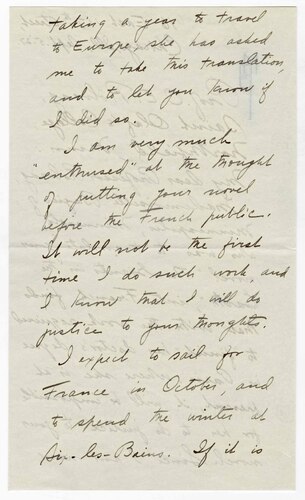 taking a year to travel
to Europe she has asked
me to take this translation,
and to let you know if
I did so.
I am very much
"enthused" at the thought
of putting your novel
before the French public.
It will not be the first
time I do such work and
I know that I will do
justice to your thoughts.
I expect to sail for
France in October, and
to spend the winter at
Aix-les-Bains. If it is